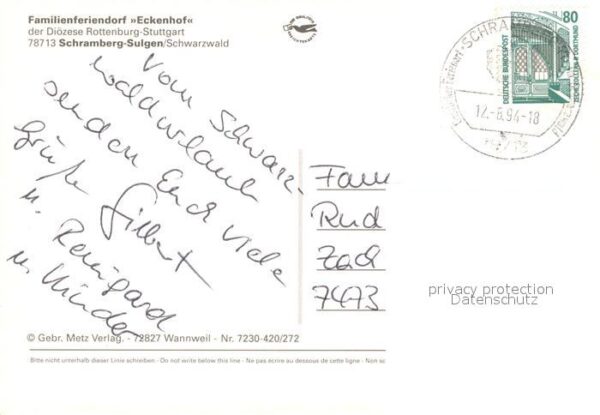 Familienferiendorf »Eckenhof«
der Diözese Rottenburg-Stuttgart
78713 Schramberg-Sulgen/Schwarzwald
80
DEUTSCHE BUNDESPOST
ZECHE ZOLLERN II DORTMUND
SCHRAMBERG
12.-6.94-18
Vom Schwarz-
waldurlaub
senden Euch viele
Grüße Gilbert
u. Remigard
u. Kinder
Fam
Rud
Zad
7473
privacy protection
Datenschutz
© Gebr. Metz Verlag. - 72827 Wannweil - Nr. 7230-420/272
Bitte nicht unterhalb dieser Linie schreiben - Do not write below this line - Ne pas écrire au dessous de cette ligne - Non sc